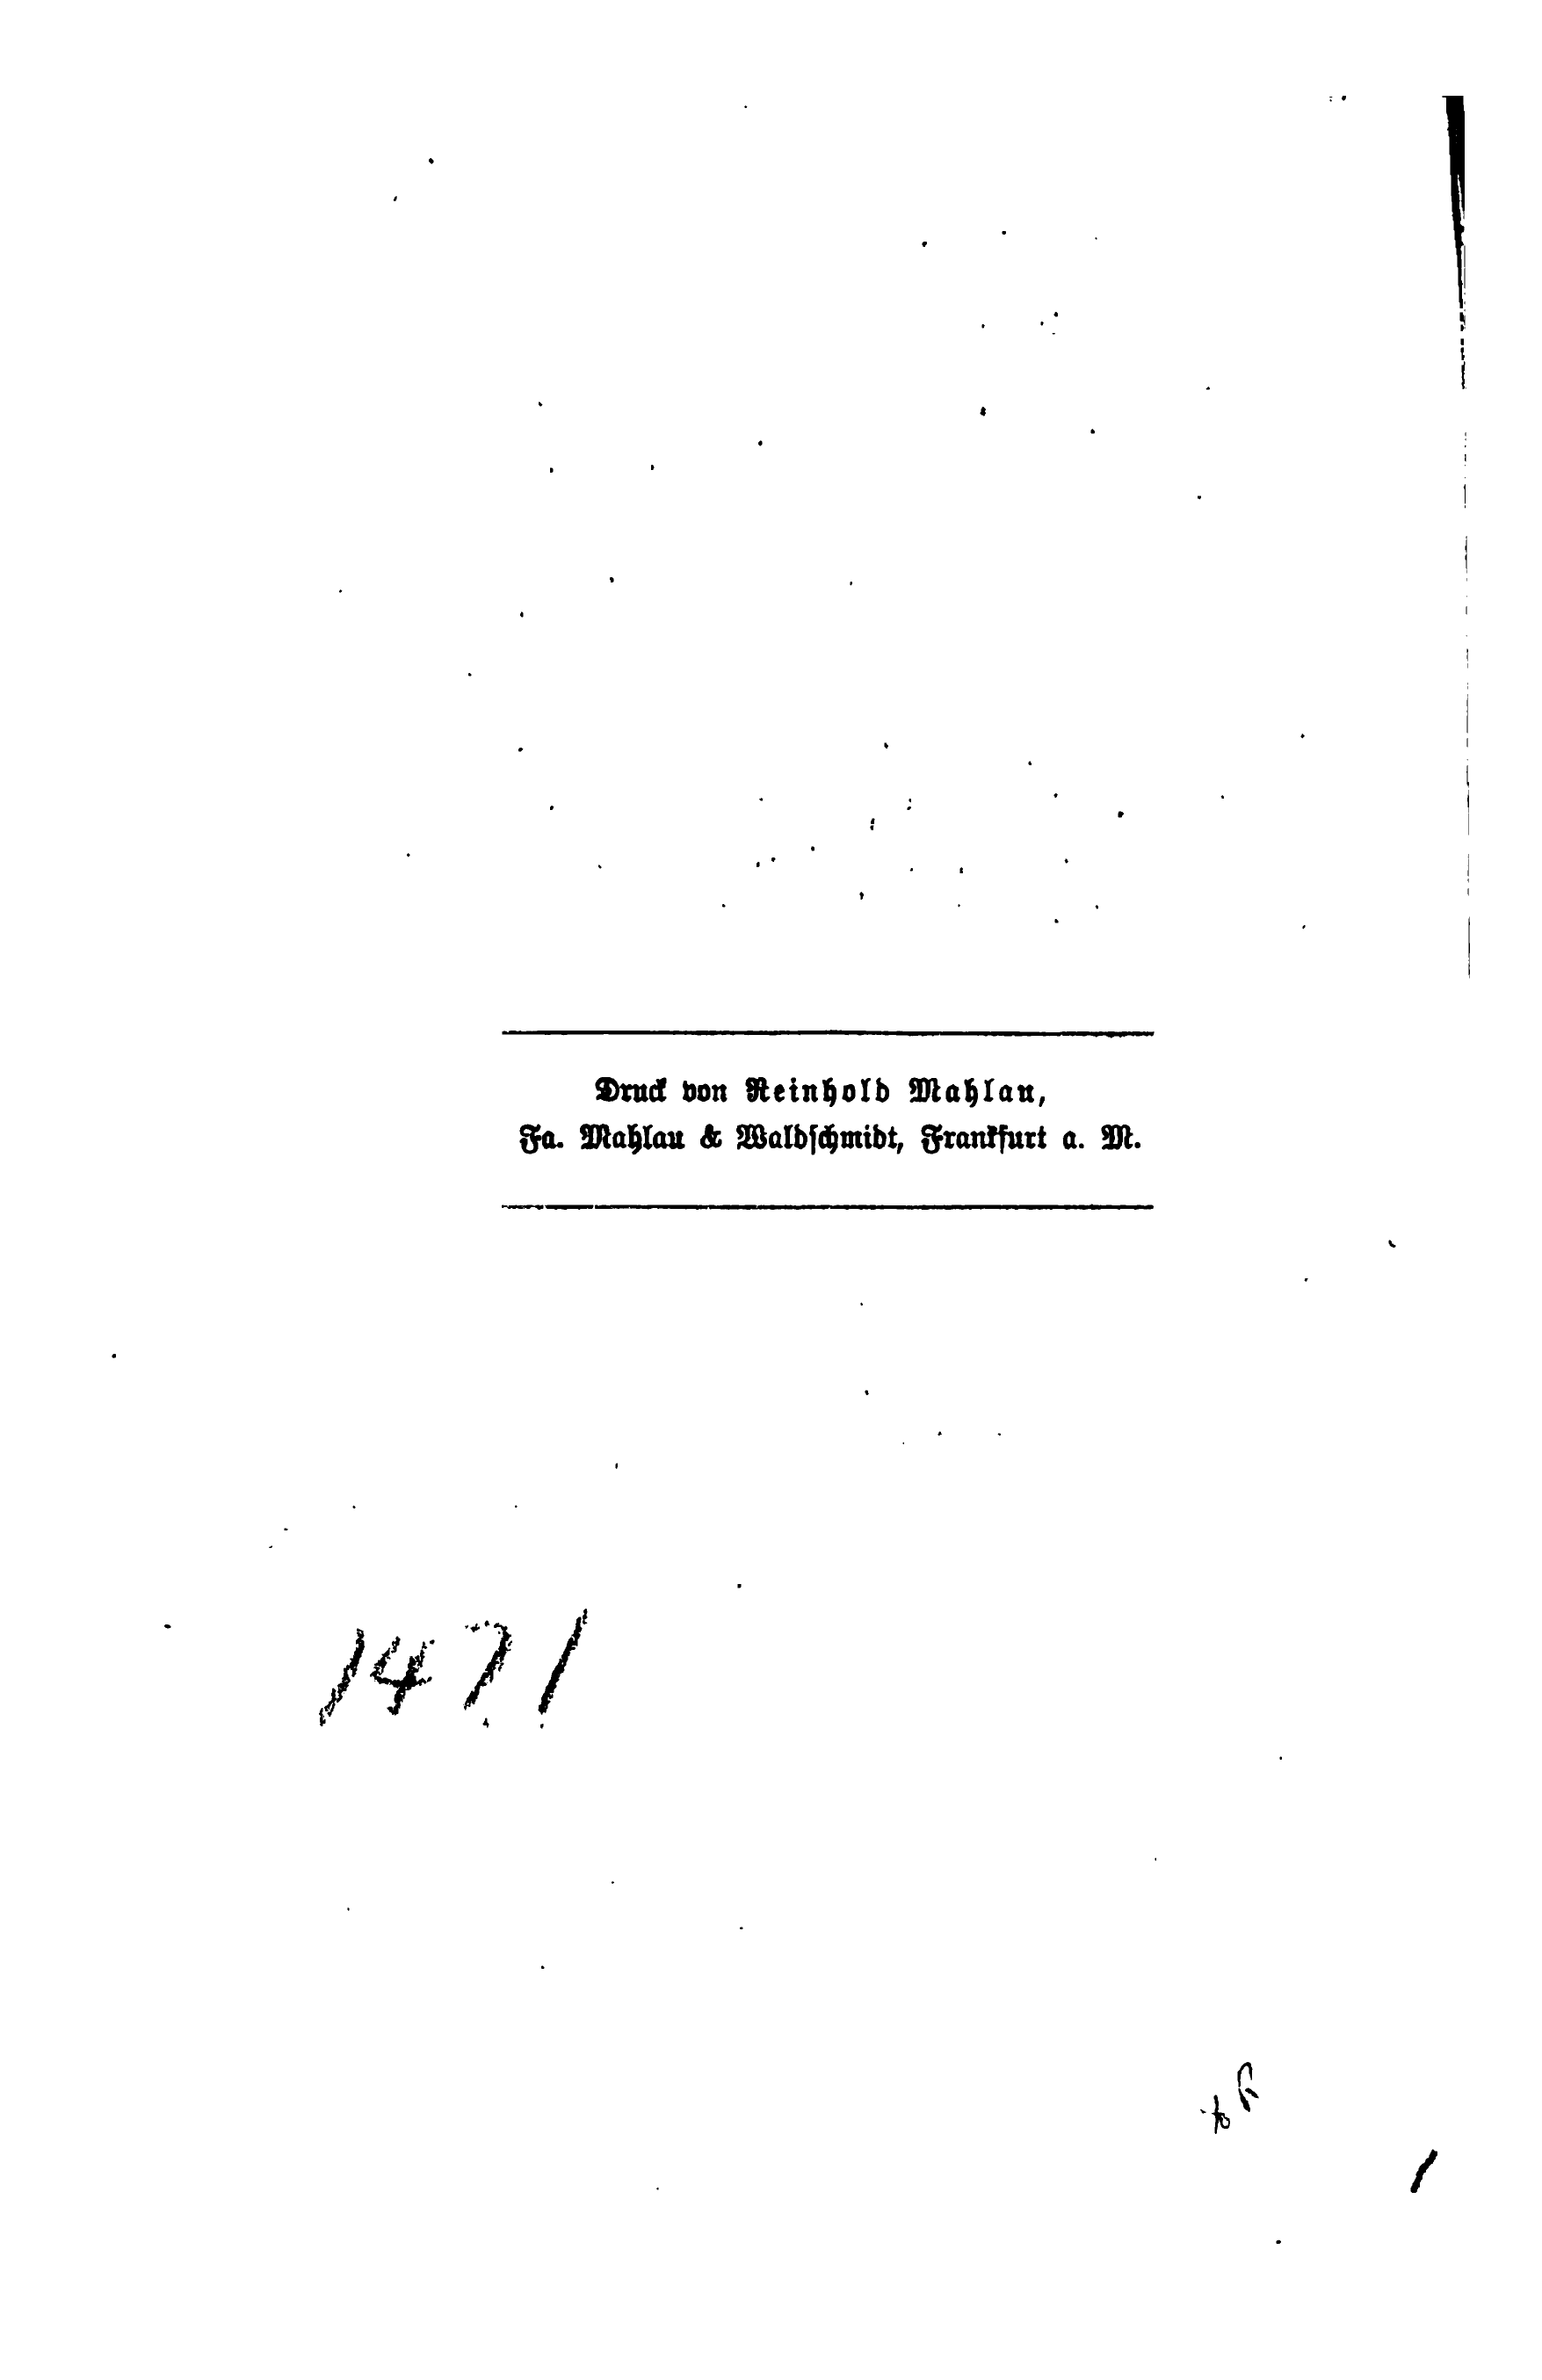 Druck von Reinhold Mahlau,
Fa. Mahlau & Waldschmidt, Frankfurt a. M.
1471